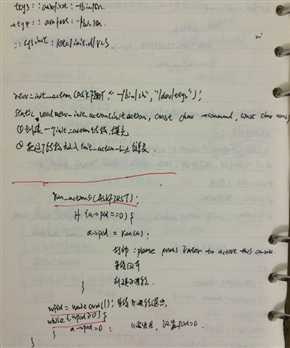 tty3::askfirst:-/bin/sh
tty4::askfirst:-/bin/sh
::sysinit:/etc/init.d/rcS
new_init_action(ASKFIRST, "-/bin/sh", "/dev/tty2");
static void new_init_action(int action, const char *command, const char *cons)
① 创建一个init_action结构, 填充
② 把这个结构放入init_action_list链表
run_actions(ASKFIRST);
if (a->pid == 0) {
a->pid = run(a);
打印: please press Enter to active this console.
等待回车
创建子进程
}
wpid = wait(NULL); 等待子进程退出
while (wpid > 0) {
a->pid = 0; 设置pid=0
}